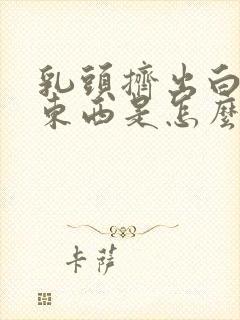 乳頭擠出白
東西是怎麼
卡薩